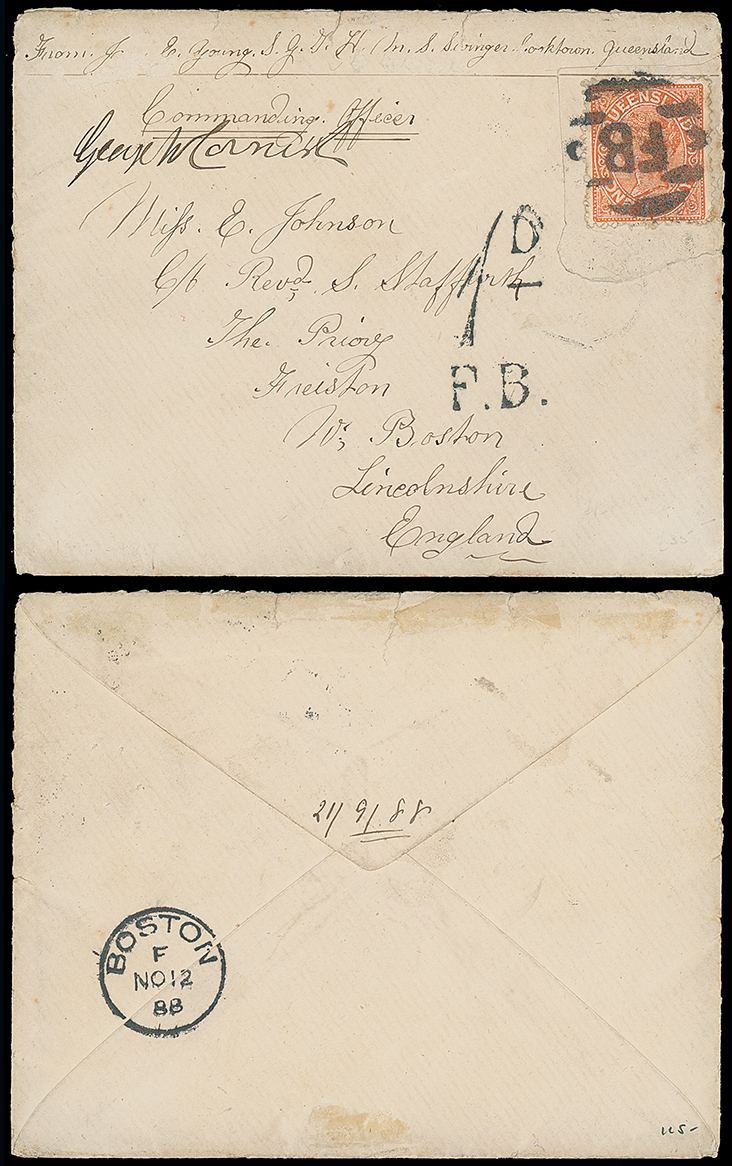 From. J. E. Young. S. G. D. H. M. S. Swinger. Cooktown. Queensland
Commanding Officer
QUEENSLAND
FB
Miss. E. Johnson
C/t Revd. S. Staffurth
The. Priory
Freiston
Nr Boston
Lincolnshire
England
1 D
F.B.
21/9/88
BOSTON
F
NO 12
88